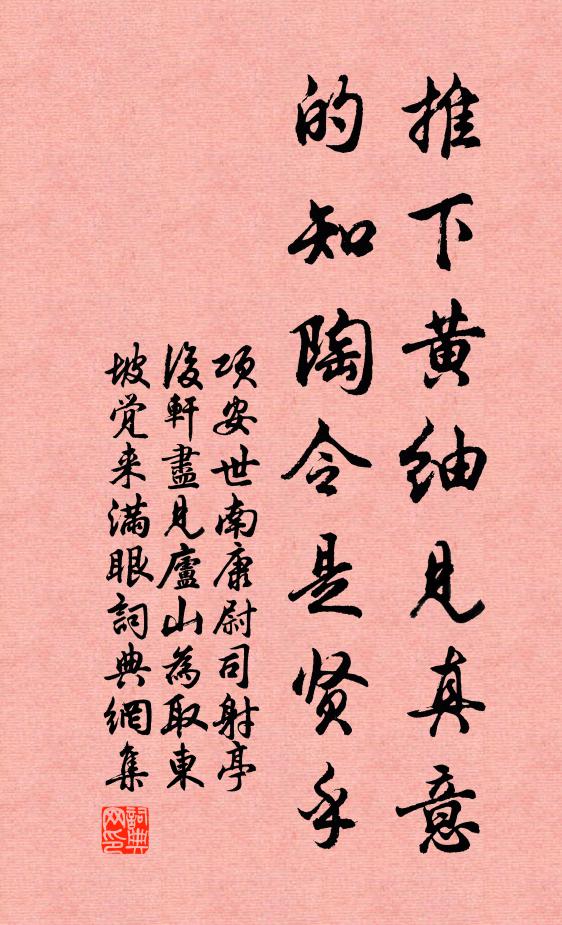 推下黄紬見真意
的知陶令是贤乎
项安世南康尉司射亭
後軒盡見廬山為取東
坡觉来满眼詞典網集
詞典网印